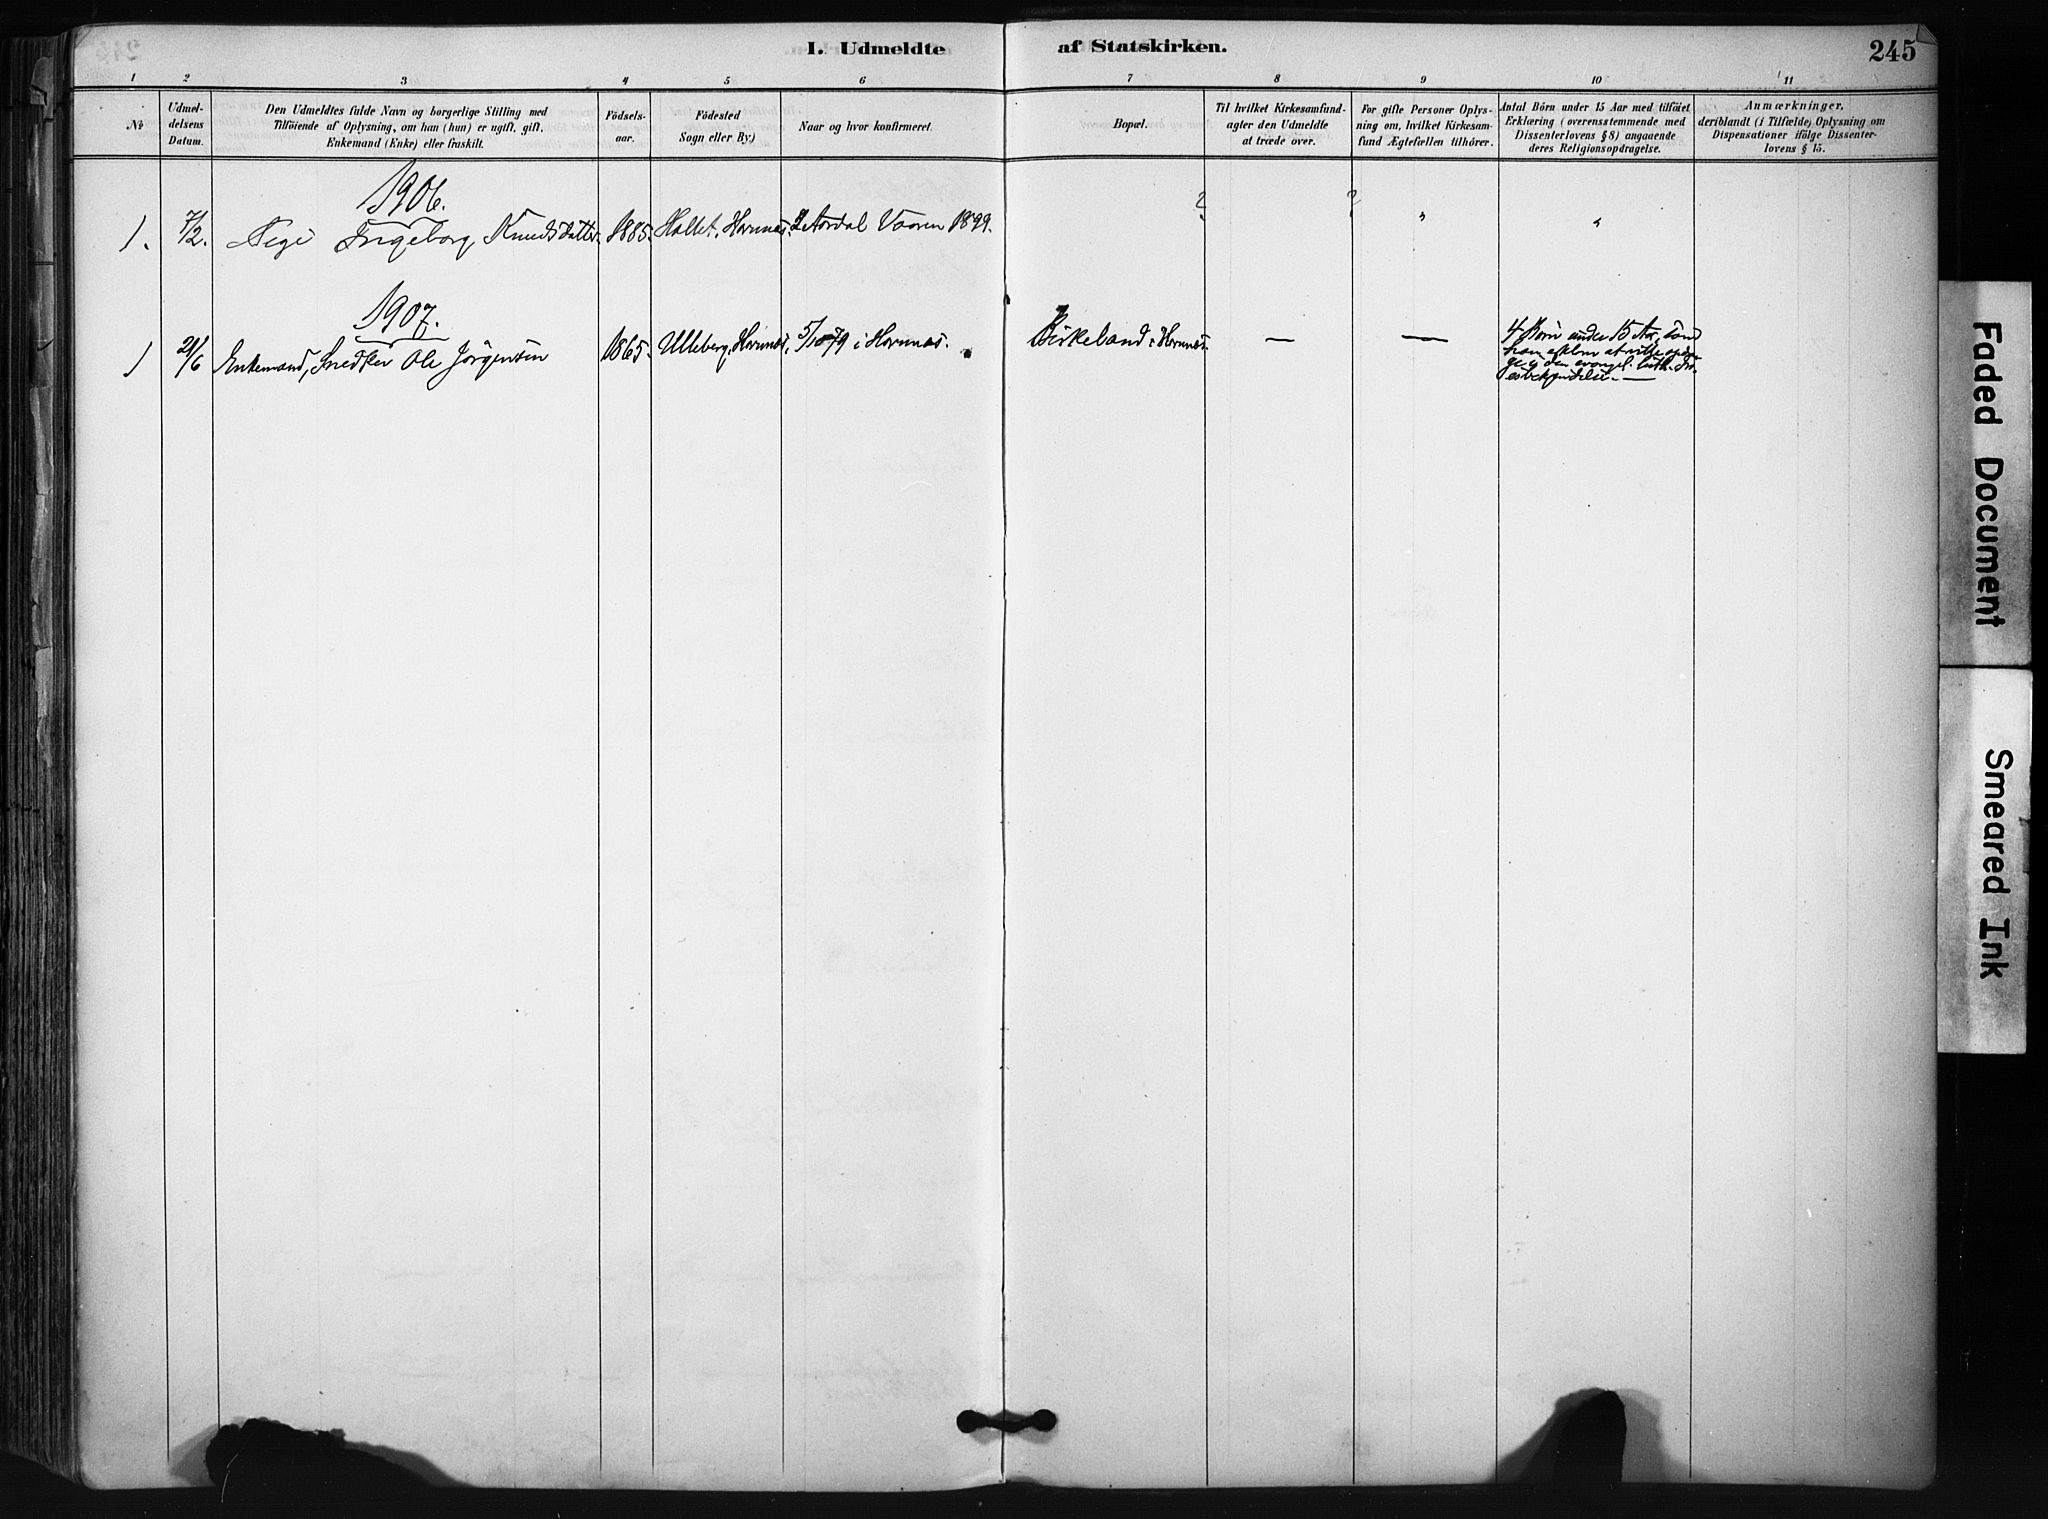 I. Udmeldte af Statskirken.
245
1 2 3 4 5 6 7 8 9 10 11
No
Udmel-
delsens
Datum.
Den Udmeldtes fulde Navn og borgerlige Stilling med
Tilföiende af Oplysning, om han (hun) er ugift, gift,
Enkemand (Enke) eller fraskilt.
Födsels-
aar.
Födested
Sogn eller By.)
Naar og hvor konfirmeret.
Bopæl.
Til hvilket Kirkesamfund-
agter den Udmeldte
at træde over.
For gifte Personer Oplys-
ning om, hvilket Kirkesam-
fund Ægtefællen tilhörer.
Antal Börn under 15 Aar med tilföiet
Erklæring (overensstemmende med
Dissenterlovens § 8) angaaende
deres Religionsopdragelse.
Anmærkninger,
deriblandt (i Tilfælde) Oplysning om
Dispensationer ifölge Dissenter-
lovens § 15.
1906.
1. 7/2. Pige Ingeborg Knudsdatter. 1885. Hallet, Hornnæs. Aardal Vaaren 1899. ? ? " "
1907.
1 21/6 Enkemand, Snedker Ole Jörgensen 1865. Uleberg, Hornnæs. 5/10 79 i Hornnæs. Birkeland i Hornnæs. — —
4 Börn under 15 Aar, som
han at ville opdra-
ge i den evangel. luth. Tro-
esbekjendelse. —
Faded Document
Smeared Ink